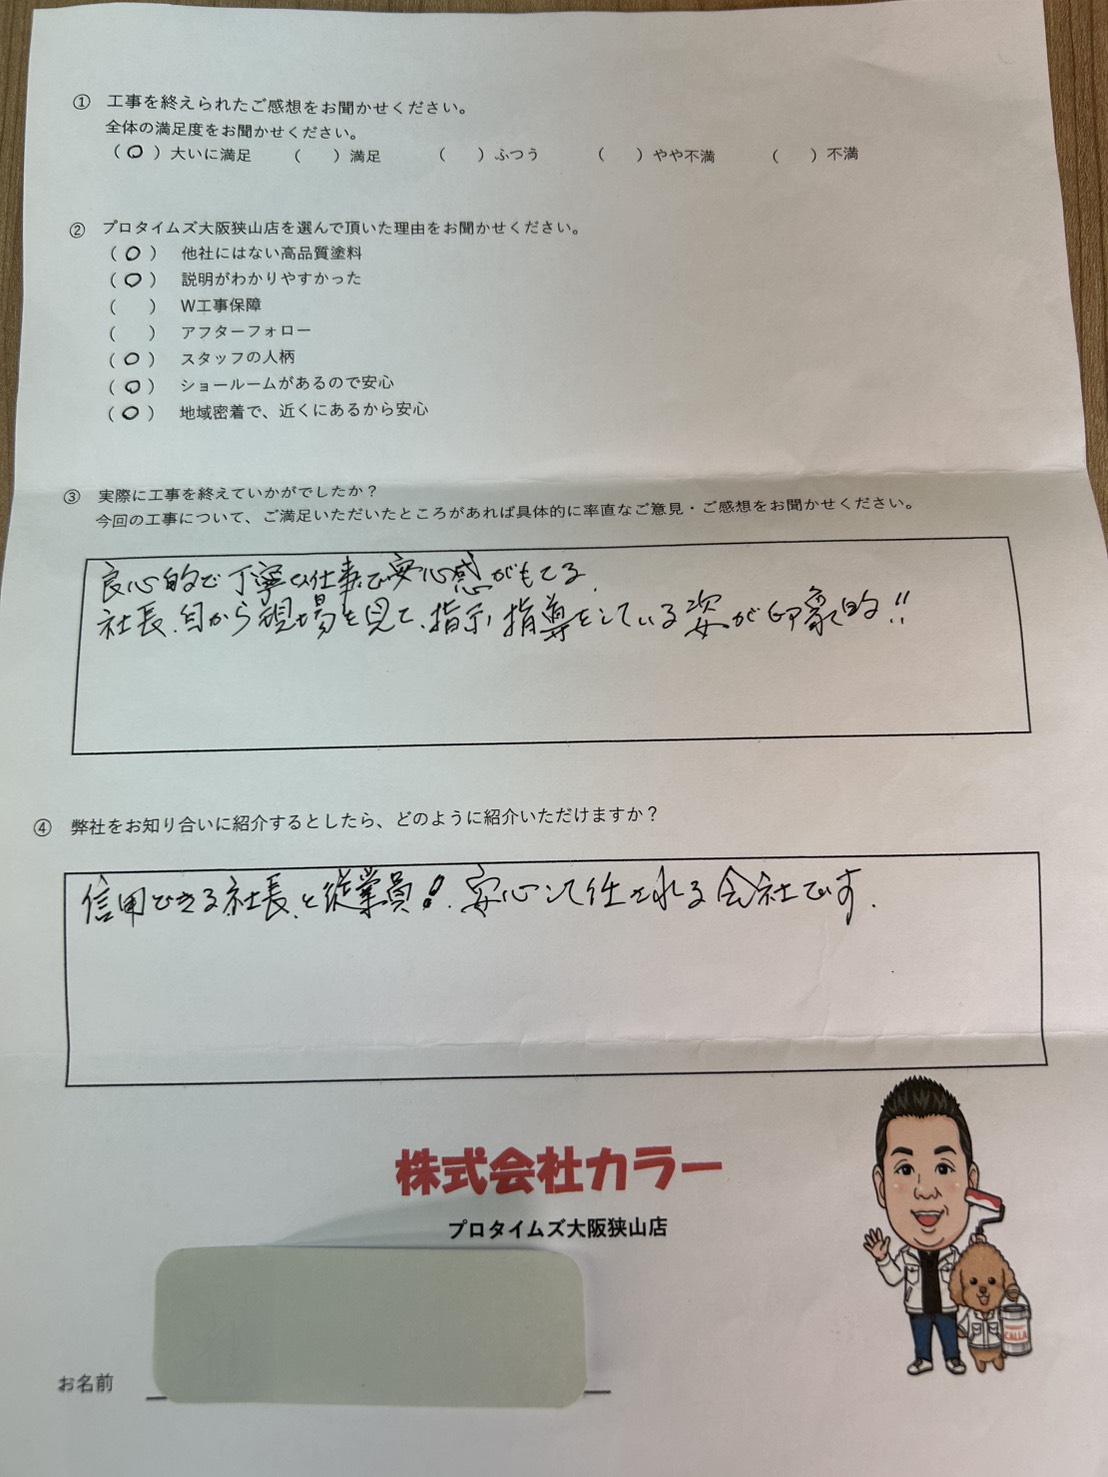 ① 工事を終えられたご感想をお聞かせください。
全体の満足度をお聞かせください。
(○)大いに満足 ( )満足 ( )ふつう ( )やや不満 ( )不満
② プロタイムズ大阪狭山店を選んで頂いた理由をお聞かせください。
(○) 他社にはない高品質塗料
(○) 説明がわかりやすかった
( ) W工事保障
( ) アフターフォロー
(○) スタッフの人柄
(○) ショールームがあるので安心
(○) 地域密着で、近くにあるから安心
③ 実際に工事を終えていかがでしたか?
今回の工事について、ご満足いただいたところがあれば具体的に率直なご意見・ご感想をお聞かせください。
良心的で丁寧な仕事で安心感がもてる.
社長、自から現場を見て、指示、指導をしている姿が印象的!!
④ 弊社をお知り合いに紹介するとしたら、どのように紹介いただけますか?
信用できる社長、と従業員!.安心して任される会社です.
株式会社カラー
プロタイムズ大阪狭山店
CALLA
お名前